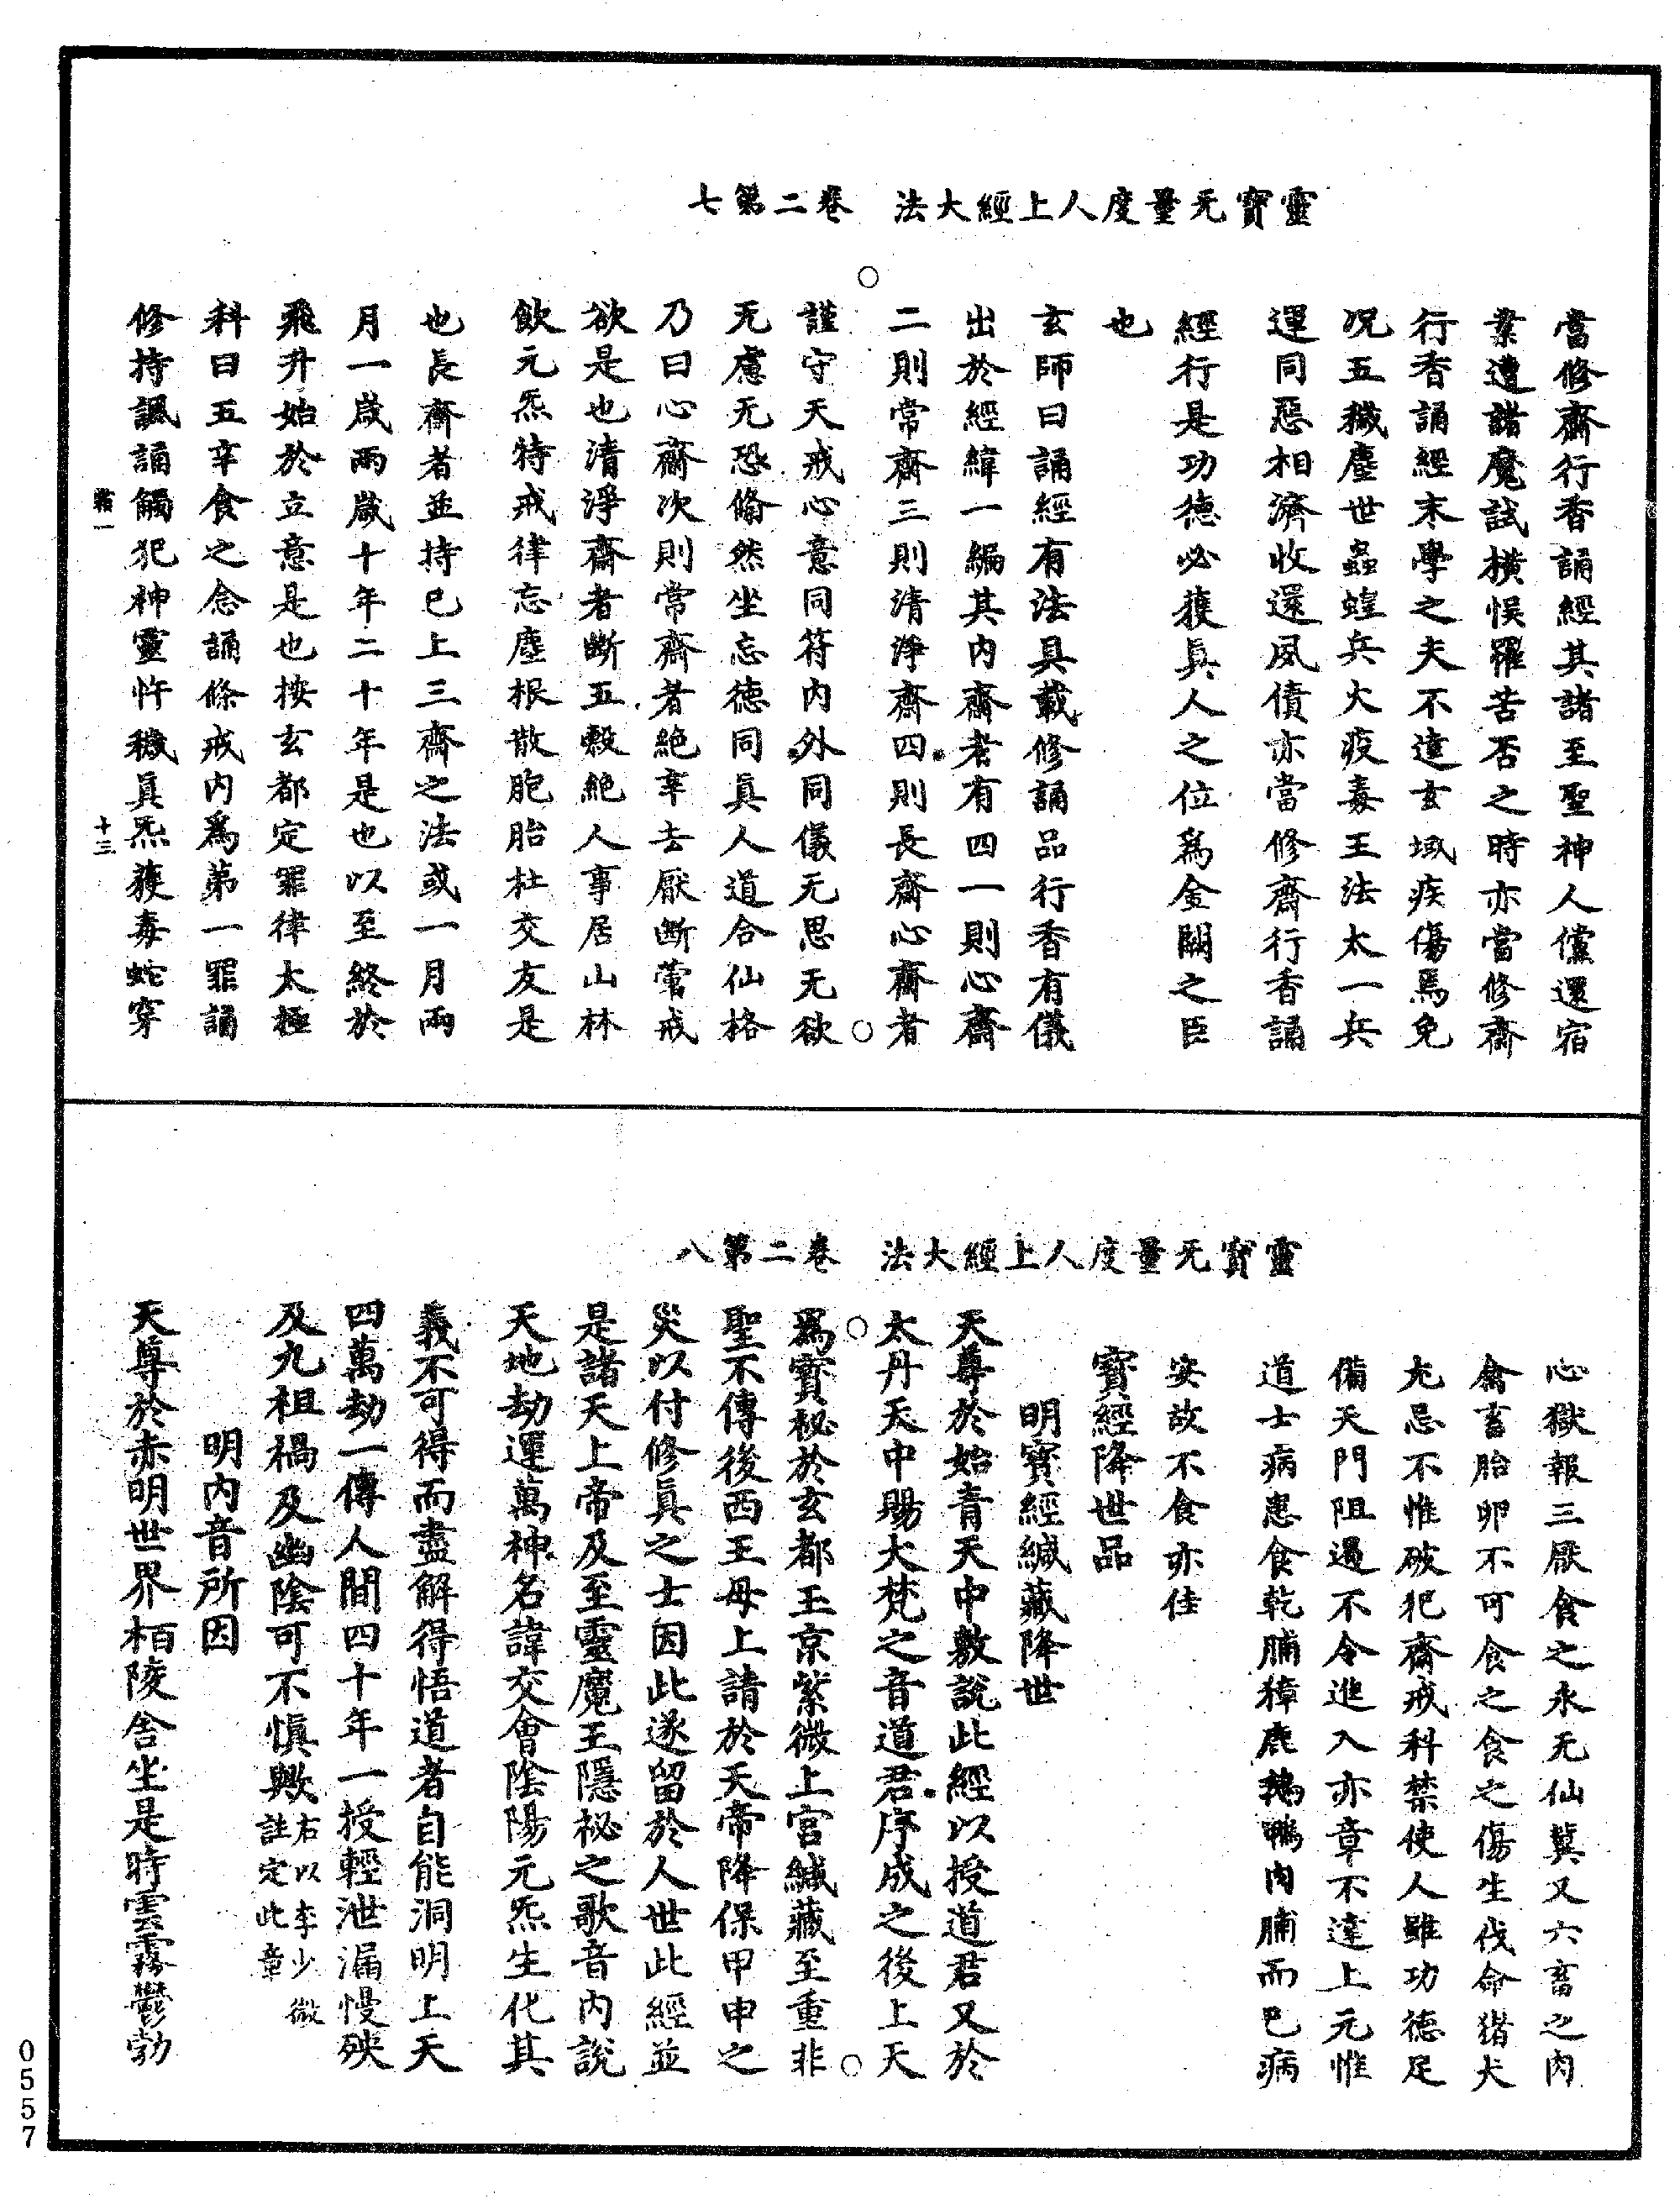 靈寶无量度人上經大法　卷二第七
當修齋行香誦經其諸至聖神人儻還宿
業遭諸魔試橫悮羅苦否之時亦當修齋
行香誦經末學之夫不達玄域疾傷焉免
況五穢塵世蟲蝗兵火疫毒王法太一兵
運同惡相濟收還夙債亦當修齋行香誦
經行是功德必獲真人之位為金闕之臣
也
玄師曰誦經有法具載修誦品行香有儀
出於經緯一編其內齋者有四一則心齋
二則常齋三則清淨齋四則長齋心齋者
謹守天戒心意同符內外同儀无思无欲
无慮无恐翛然坐忘德同真人道合仙格
乃曰心齋次則常齋者絶辛去厭斷葷戒
欲是也清淨齋者斷五穀絶人事居山林
飲元炁特戒律忘塵根散胞胎杜交友是
也長齋者並持已上三齋之法或一月兩
月一歲兩歲十年二十年是也以至終於
飛升始於立意是也按玄都定罪律太極
科曰五辛食之念誦條戒內為第一罪誦
修持諷誦觸犯神靈忤穢真炁獲毒蛇穿
十三
靈寶无量度人上經大法　卷二第八
心獄報三厭食之永无仙冀又六畜之肉
禽畜胎卵不可食之食之傷生伐命猪犬
尤忌不惟破犯齋戒科禁使人雖功德足
備天門阻遏不令進入亦章不達上元惟
道士病患食乾脯獐鹿鵝鴨肉脯而已病
安故不食亦佳
寶經降世品
明寶經緘藏降世
天尊於始青天中敷說此經以授道君又於
太丹天中賜大梵之音道君序成之後上天
為寶祕於玄都玉京紫微上宮緘藏至重非
聖不傳後西王母上請於天帝降保甲申之
災以付修真之士因此遂留於人世此經並
是諸天上帝及至靈魔王隱祕之歌音內說
天地劫運萬神名諱交會陰陽元炁生化其
義不可得而盡解得悟道者自能洞明上天
四萬劫一傳人間四十年一授輕泄漏慢殃
及九祖禍及幽陰可不慎歟右以李少微註定此章
明內音所因
天尊於赤明世界栢陵舍坐是時雲霧鬱勃
0557